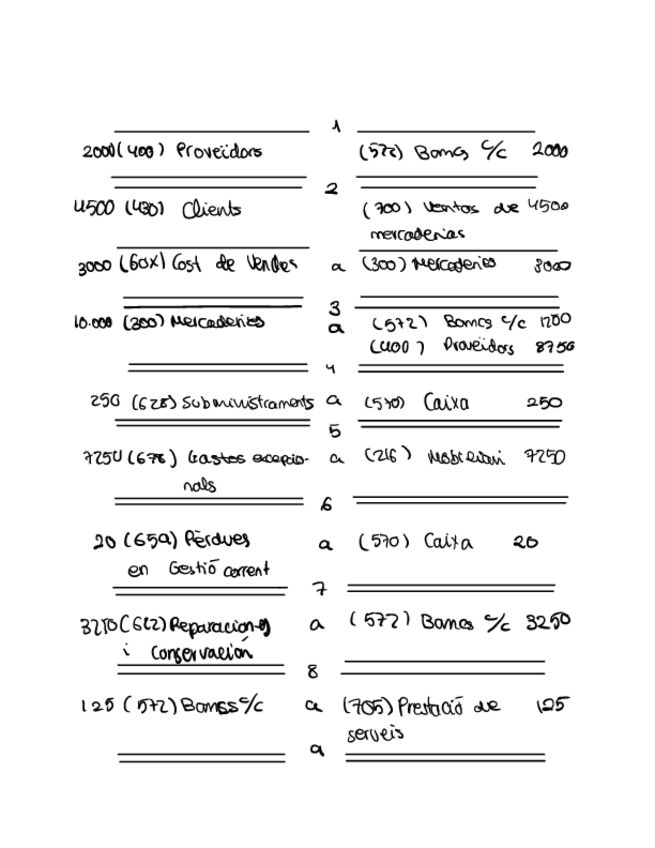 1
2000 (400) Proveïdors (572) Bancs c/c 2000
2
4500 (430) Clients (700) Ventas de 4500
mercaderias
3000 (60X) Cost de Vendes a (300) Mercaderies 3000
3
10.000 (300) Mercaderies a (572) Bancs c/c
(400) Proveïdors 8750
4
250 (628) Subministraments a (570) Caixa 250
5
7250 (678) Gastos excepcio- a (216) Mobiliari 7250
nals
6
20 (659) Pèrdues a (570) Caixa 20
en Gestió corrent
7
(622) Reparacions a (572) Bancs c/c 3250
i Conservación
8
125 (572) Bancs c/c a (705) Prestació de 125
serveis
a